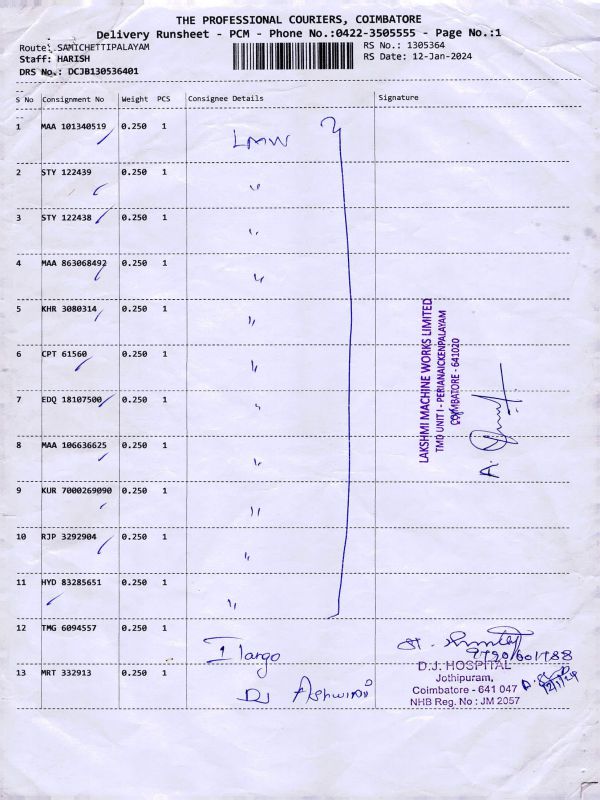 THE PROFESSIONAL COURIERS, COIMBATORE
Delivery Runsheet - PCM - Phone No.:0422-3505555 - Page No.:1
Route: SAMICHETTIPALAYAM
RS No.: 1305364
Staff: HARISH
RS Date: 12-Jan-2024
DRS No.: DCJB130536401
S No Consignment No Weight PCS Consignee Details Signature
1 MAA 101340519 0.250 1 LMW
2 STY 122439 0.250 1 "
3 STY 122438 0.250 1 "
4 MAA 863068492 0.250 1 "
5 KHR 3080314 0.250 1 "
6 CPT 61560 0.250 1 "
7 EDQ 18107500 0.250 1 "
8 MAA 106636625 0.250 1 "
9 KUR 7000269090 0.250 1 "
10 RJP 3292904 0.250 1 "
11 HYD 83285651 0.250 1 "
LAKSHMI MACHINE WORKS LIMITED
TMD UNIT I - PERIANAICKENPALAYAM
COIMBATORE - 641020
12 TMG 6094557 0.250 1 Ilango
9790601788
13 MRT 332913 0.250 1 DJ Ashwini
D.J. HOSPITAL
Jothipuram,
Coimbatore - 641 047
NHB Reg. No : JM 2057
12/1/24